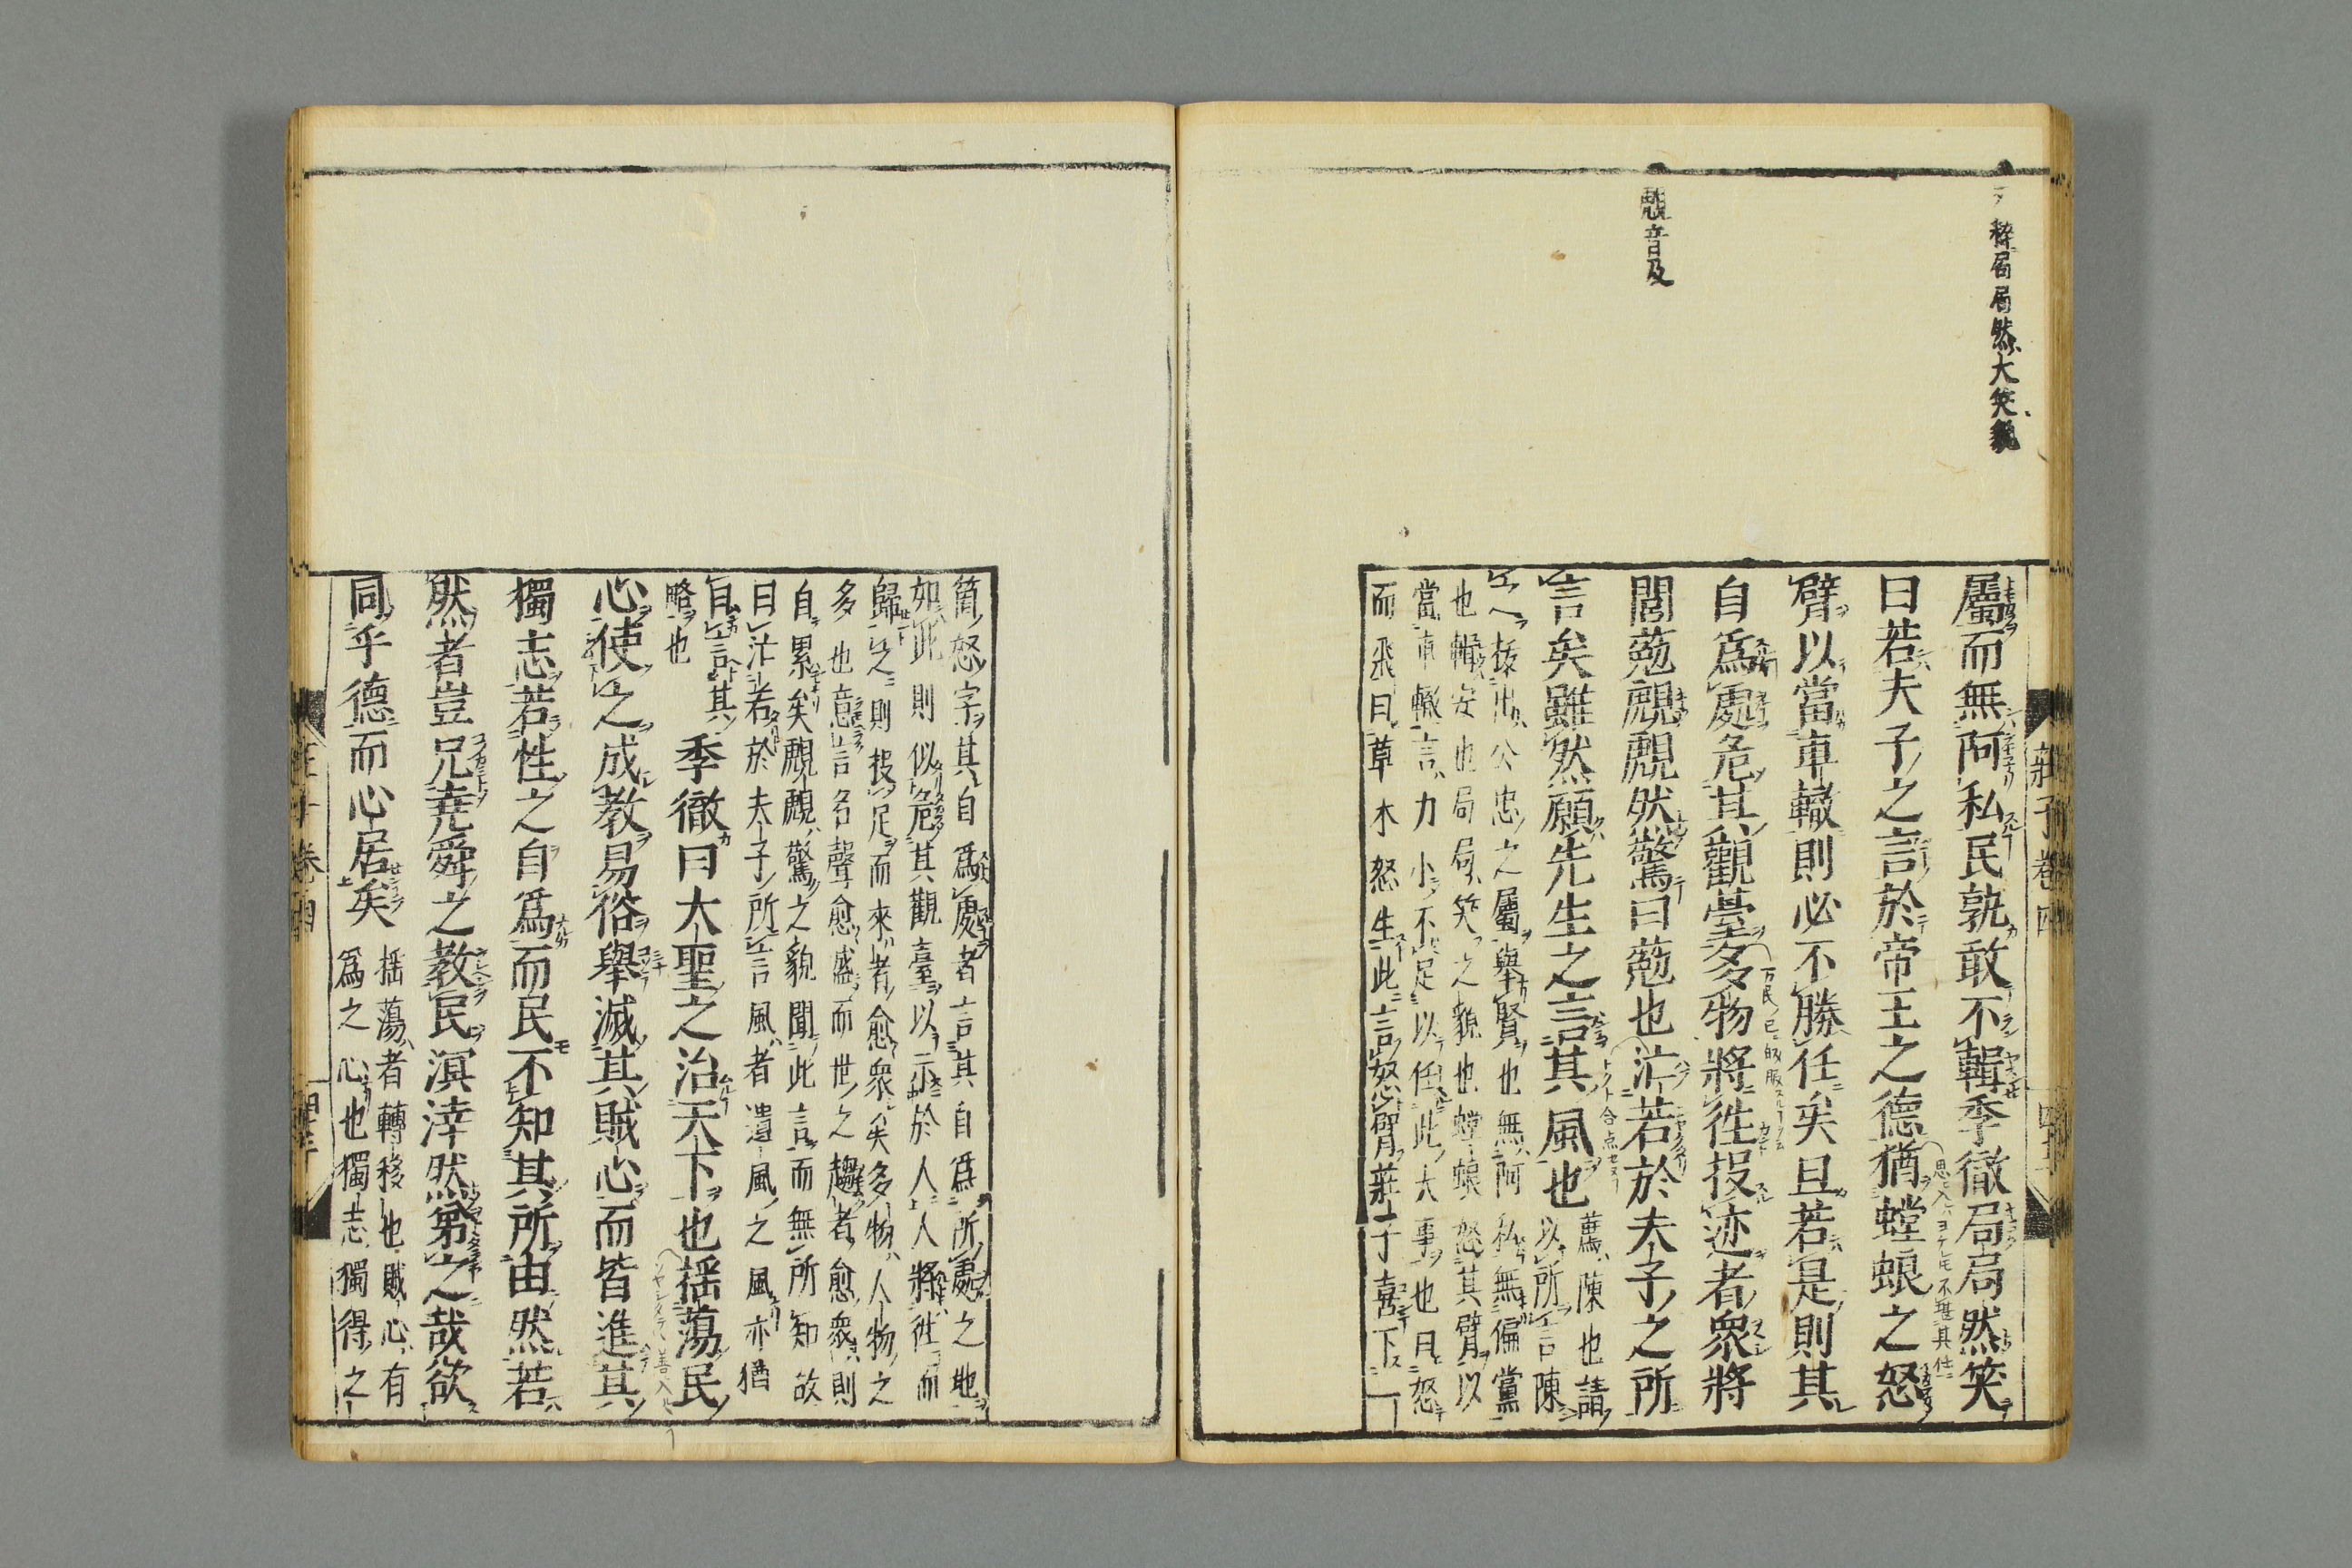 粹局局然大笑貌
覤音及
莊子卷四
屬而無阿私民孰敢不輯季徹局局然笑
曰若夫子之言於帝王之德猶螳蜋之怒
臂以當車轍則必不勝任矣且若是則其
自爲處危其觀臺多物將徃投迹者衆將
閭葂覤覤然驚曰葂也汒若於夫子之所
言矣雖然願先生之言其風也
薦陳也請
以所言陳
之拔出公忠之屬舉賢也無阿私無偏黨
也輯安也局局笑之貌也螳蜋怒其臂以
當車轍言力小不足以任此大事也曰怒
而飛曰草木怒生此言怒臂莊子喜下一
箇怒字其自爲處者言其自爲所處之地
如此則似危其觀臺以示於人人將徃而
歸之則投足而來者愈衆矣多物人物之
多也意言名聲愈盛而世之趨者愈衆則
自累矣覤覤驚之貌聞此言而無所知故
曰汒若於夫子所言風者遺風之風亦猶
旨言其
略也
季徹曰大聖之治天下也揺蕩民
心使之成教易俗舉滅其賊心而皆進其
獨志若性之自爲而民不知其所由然若
然者豈兄堯舜之教民溟涬然第之哉欲
同乎德而心居矣
揺蕩者轉移也賊心有
爲之心也獨志獨得之